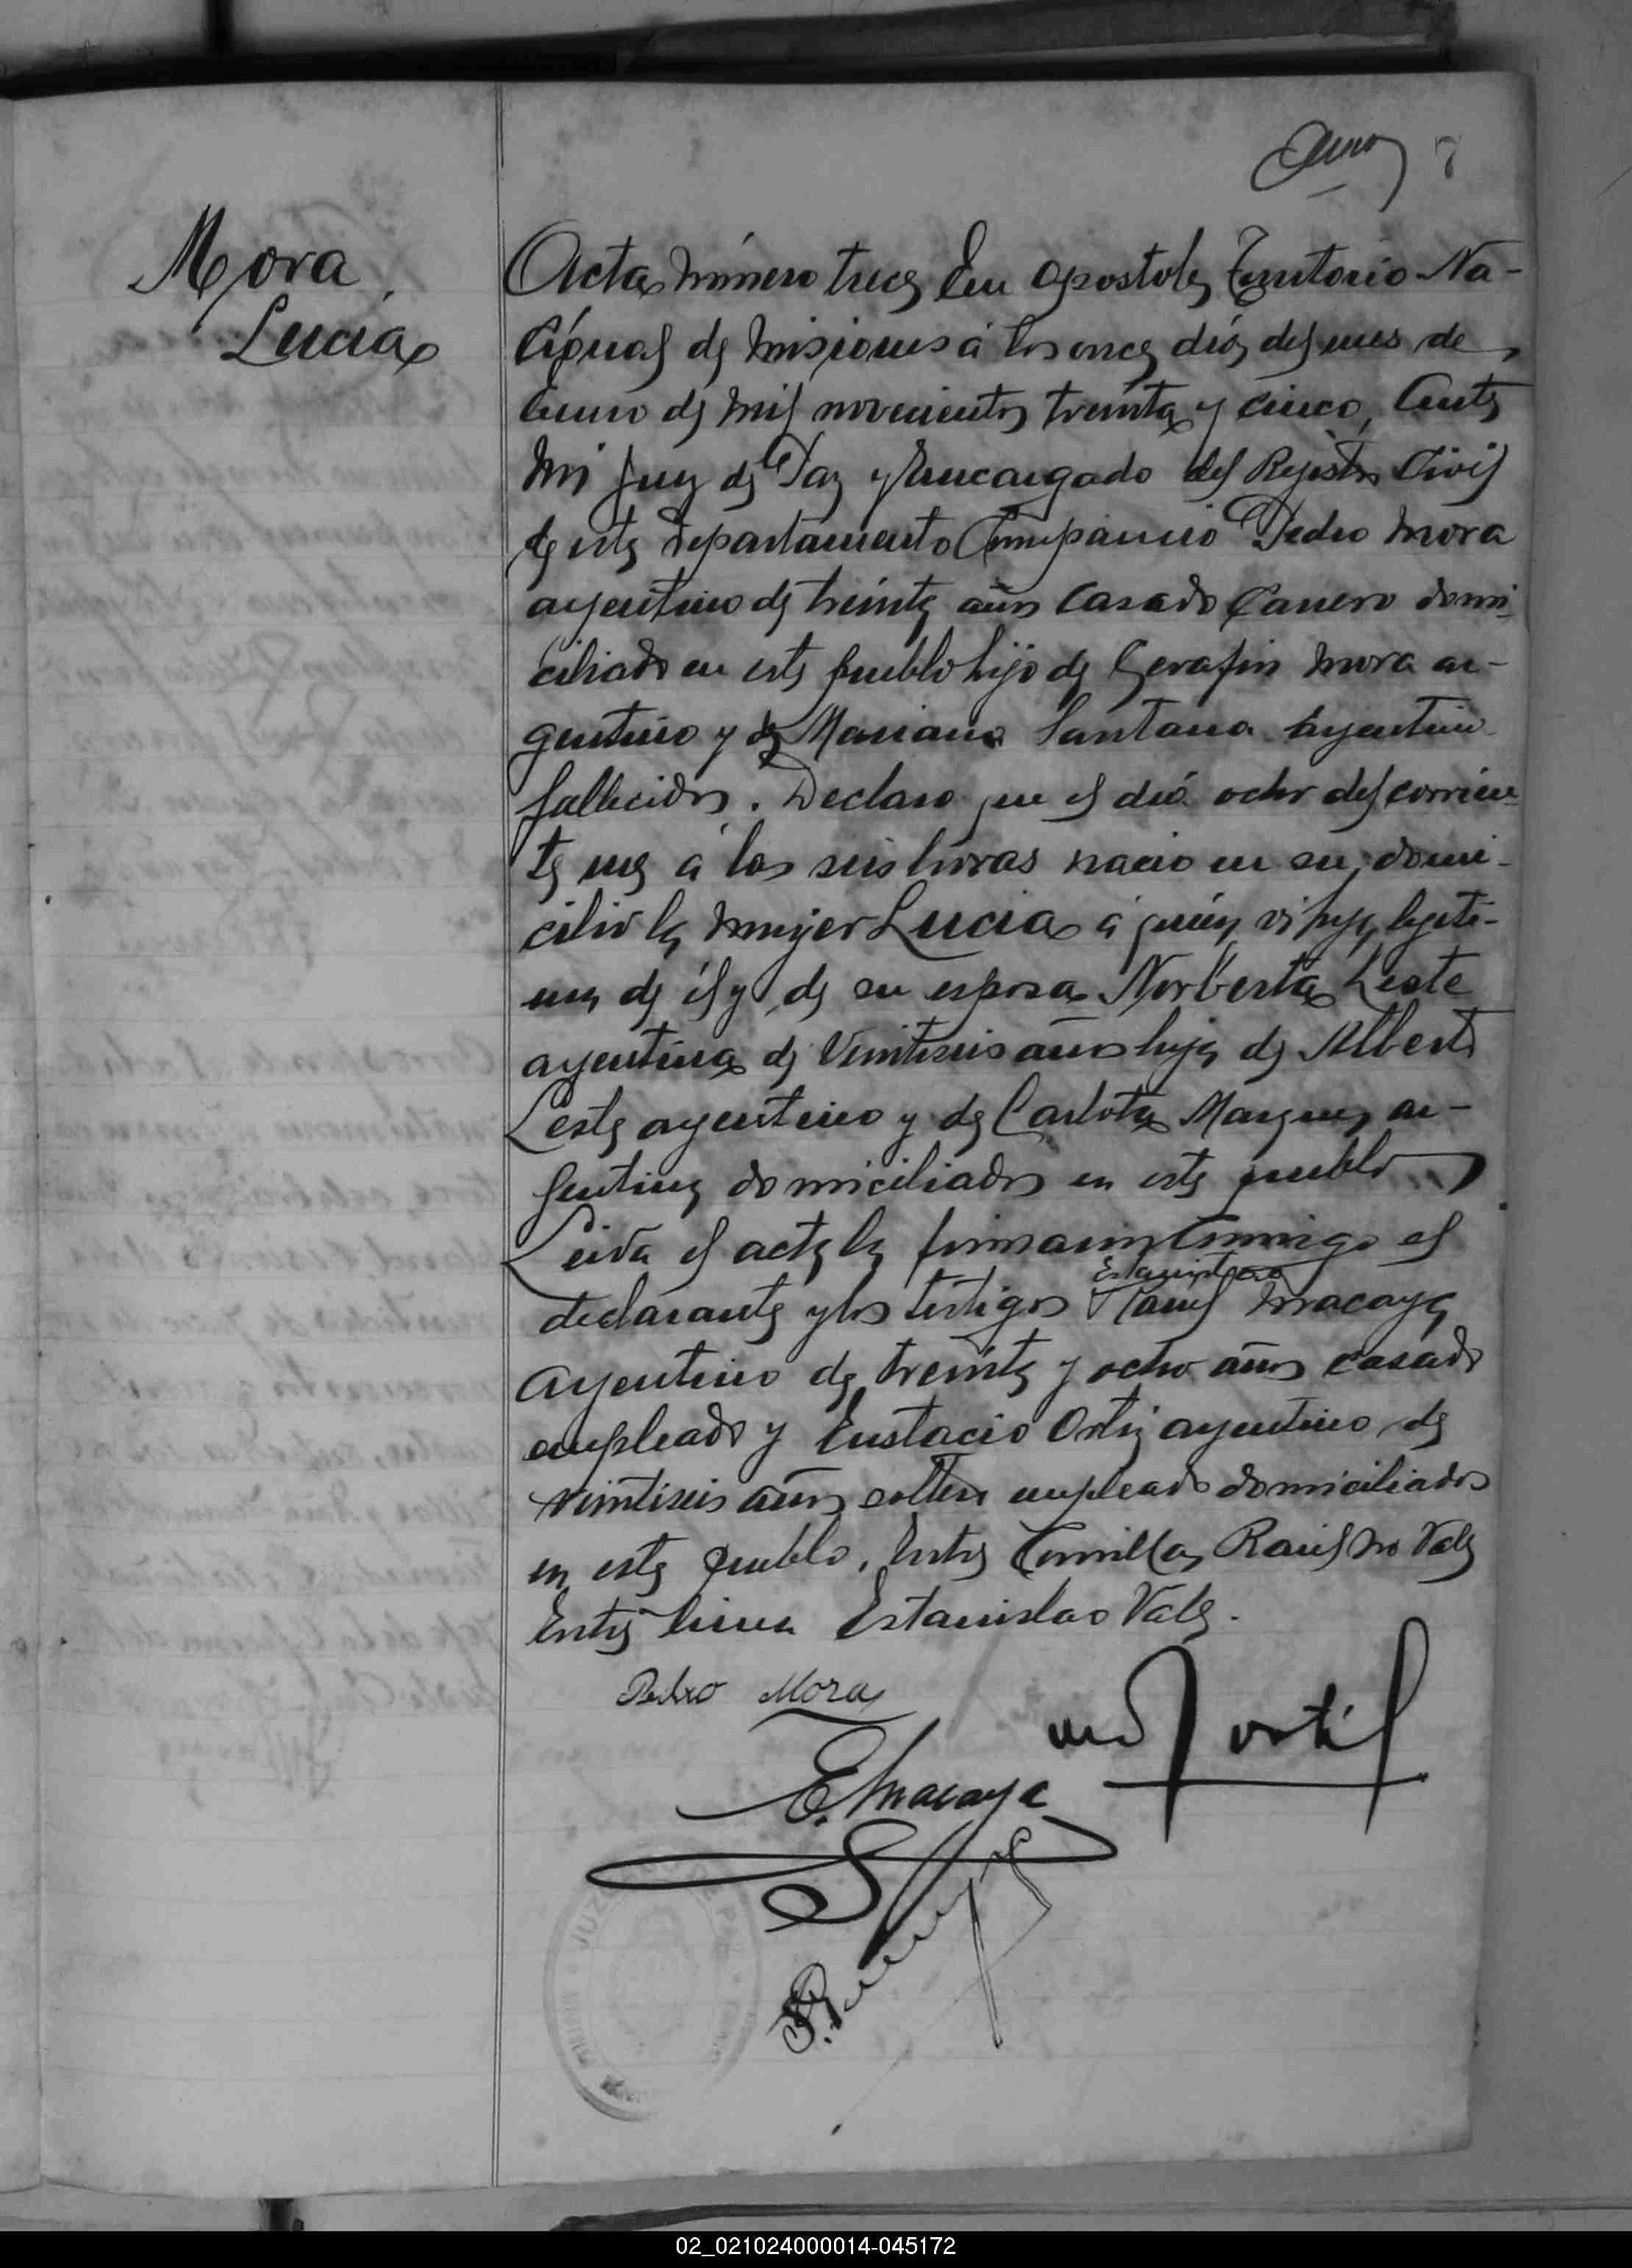 7
Mora
Lucia
Acta número trece En Apostoles Territorio Na-
cional de Misiones á los once dias del mes de
Enero de mil novecientos treinta y cinco, Ante
mi Juez de Paz y Encargado del Registro Civil
de este Departamento Compareció Pedro Mora
argentino de treinta años casado domi-
ciliado en este pueblo hijo de Serafin Mora ar-
gentino y de Mariana Santana argentina
fallecidos. Declaro que el diá ocho del corrien-
te mes á las seis horas nacio en su domi-
cilio la mujer Lucia á quién vi hija legiti-
ma de él y de su esposa Norberta Leste
argentina de veintiseis años hija de Alberto
Leste argentino y de Carlota Marquez ar-
gentina domiciliados en este pueblo
Leida el acta la firmaron conmigo el
Estanislao
declarante y los testigos Raul Macaya
argentino de treinta y ocho años casado
empleado y Eustacio Ortiz argentino de
veintiseis años soltero empleado domiciliados
en este pueblo. Entre comillas Raul no Vale
Entre linea Estanislao Vale.
Pedro Mora
E. Macaya
JUZ
02_021024000014-045172